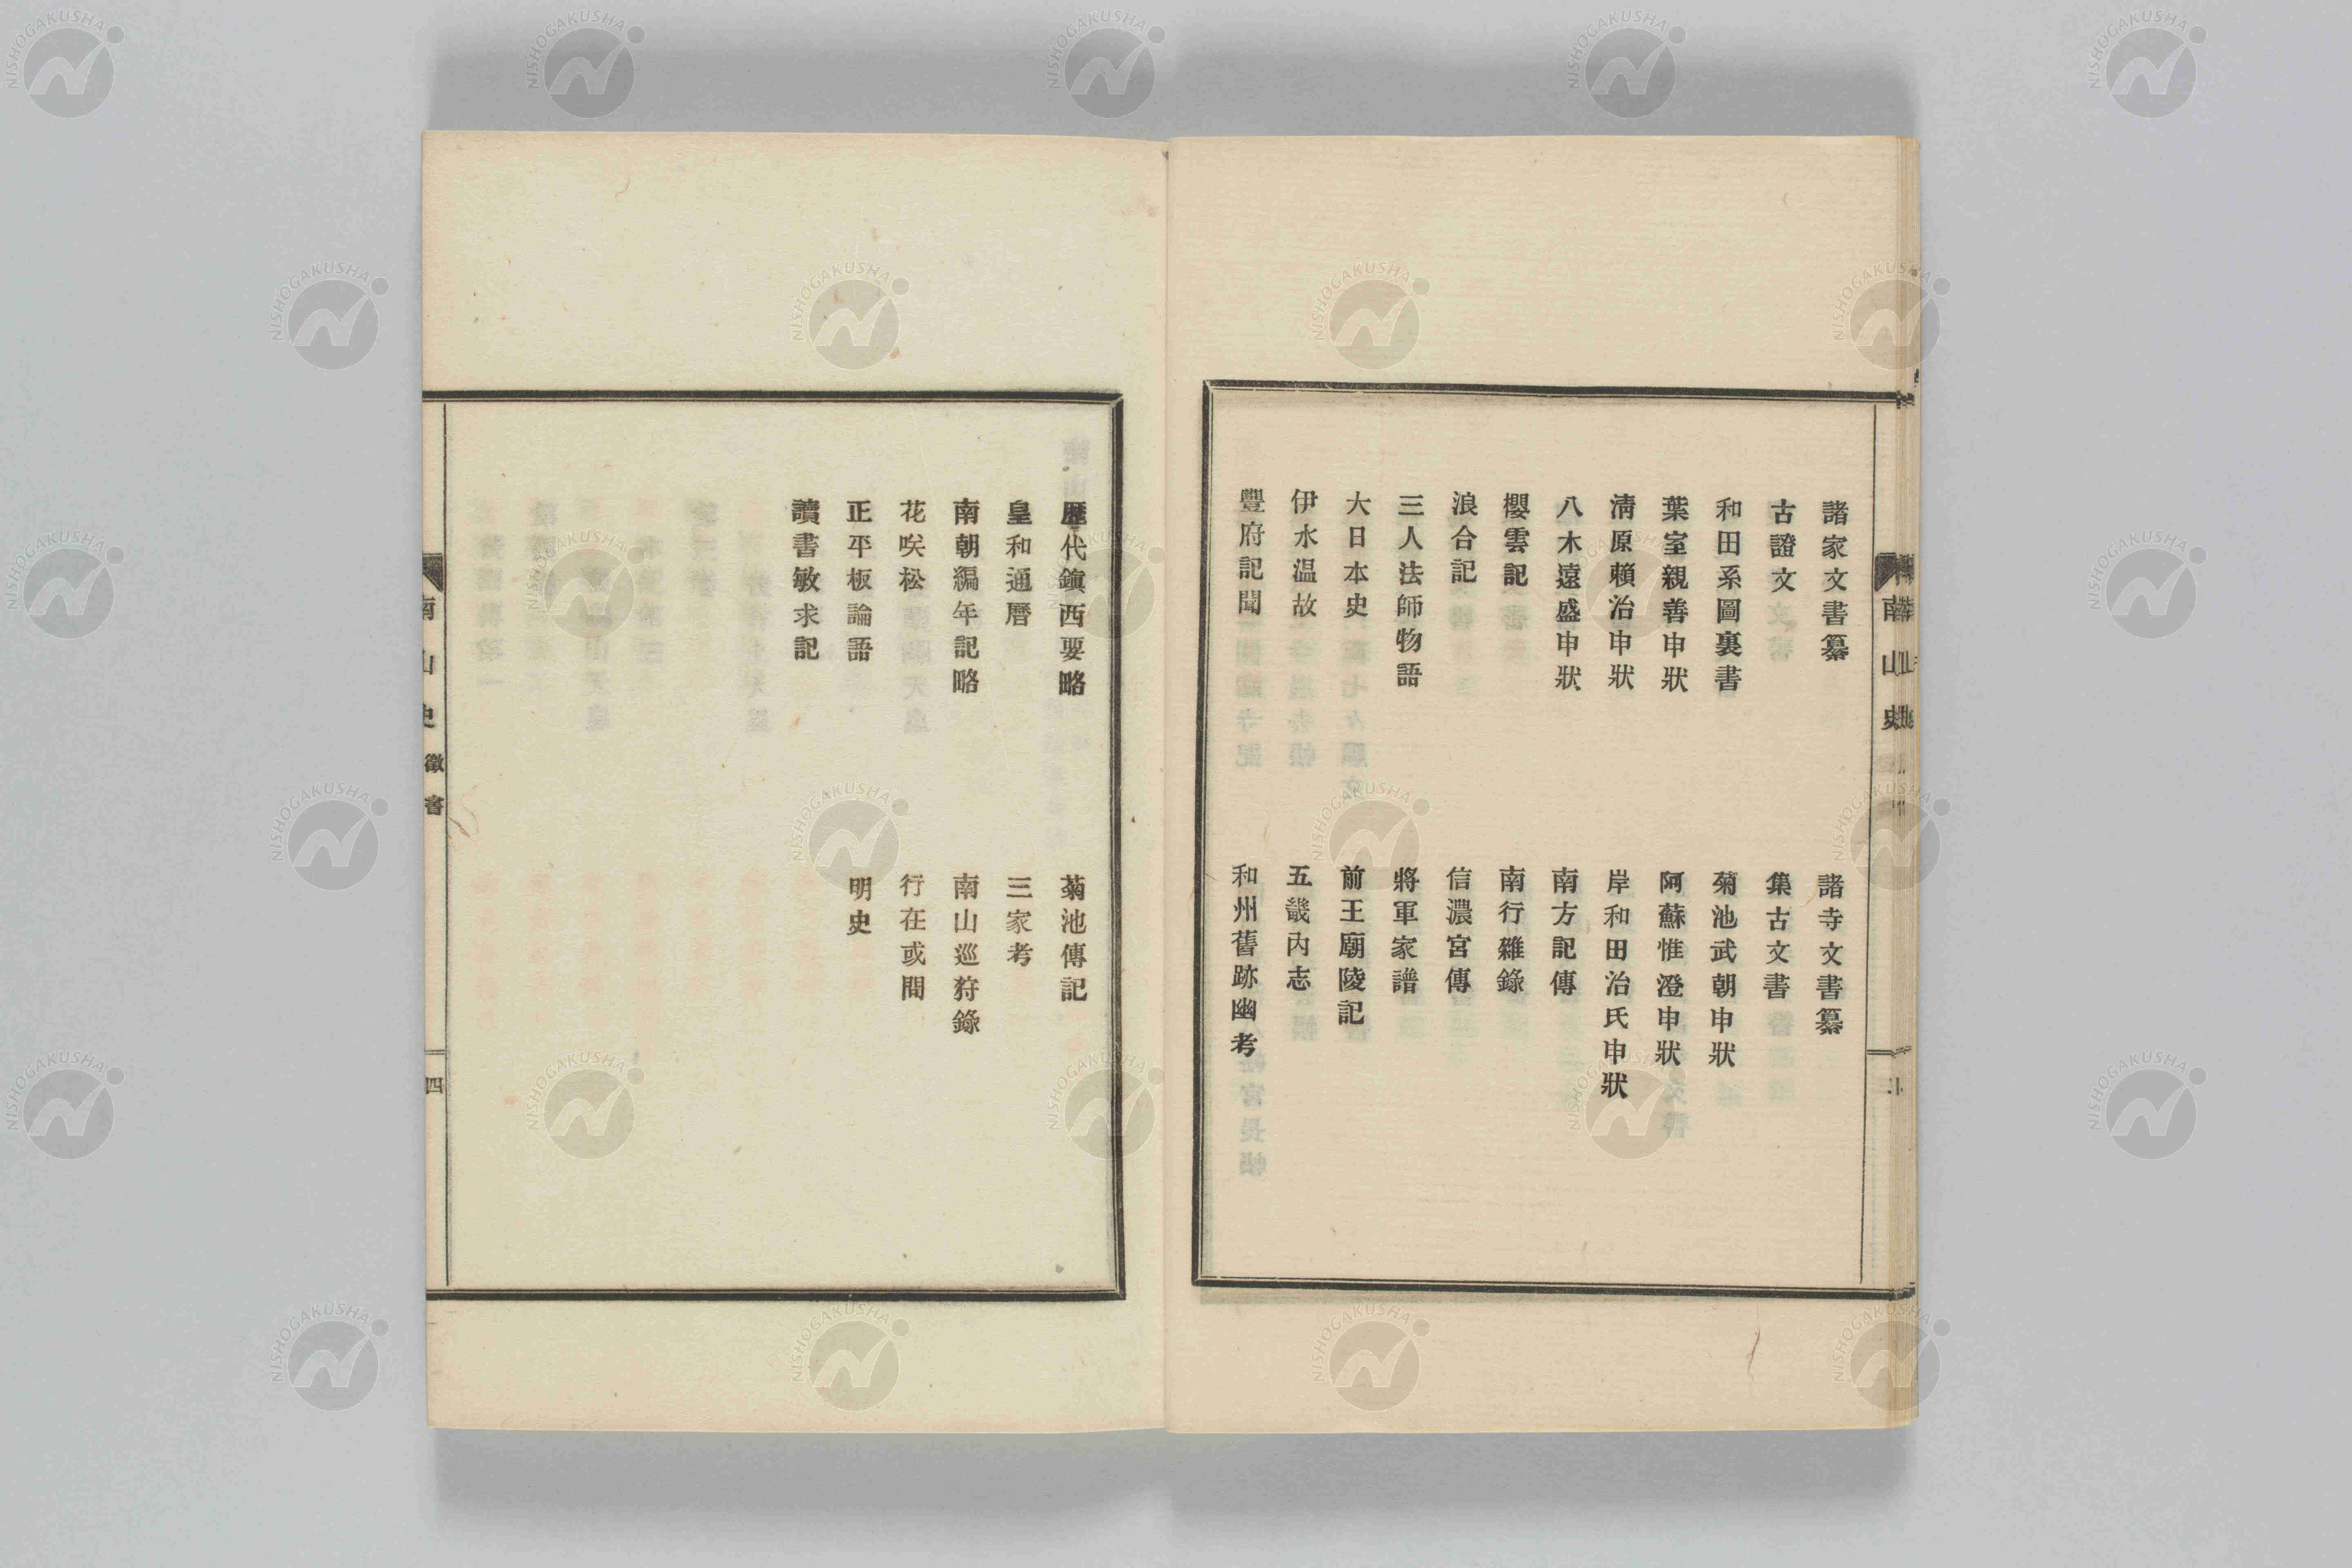 諸家文書纂
諸寺文書纂
古證文
集古文書
和田系圖裏書
菊池武朝申狀
葉室親善申狀
阿蘇惟澄申狀
淸原賴治申狀
岸和田治氏申狀
八木遠盛申狀
南方記傳
櫻雲記
南行雜錄
浪合記
信濃宮傳
三人法師物語
將軍家譜
大日本史
前王廟陵記
伊水温故
五畿内志
豐府記聞
和州舊跡幽考
南山史
歷代鎭西要略
菊池傳記
皇和通曆
三家考
南朝編年記略
南山巡狩錄
花咲松
行在或問
正平板論語
明史
讀書敏求記
南山史
徵書
四
NISHOGAKUSHA